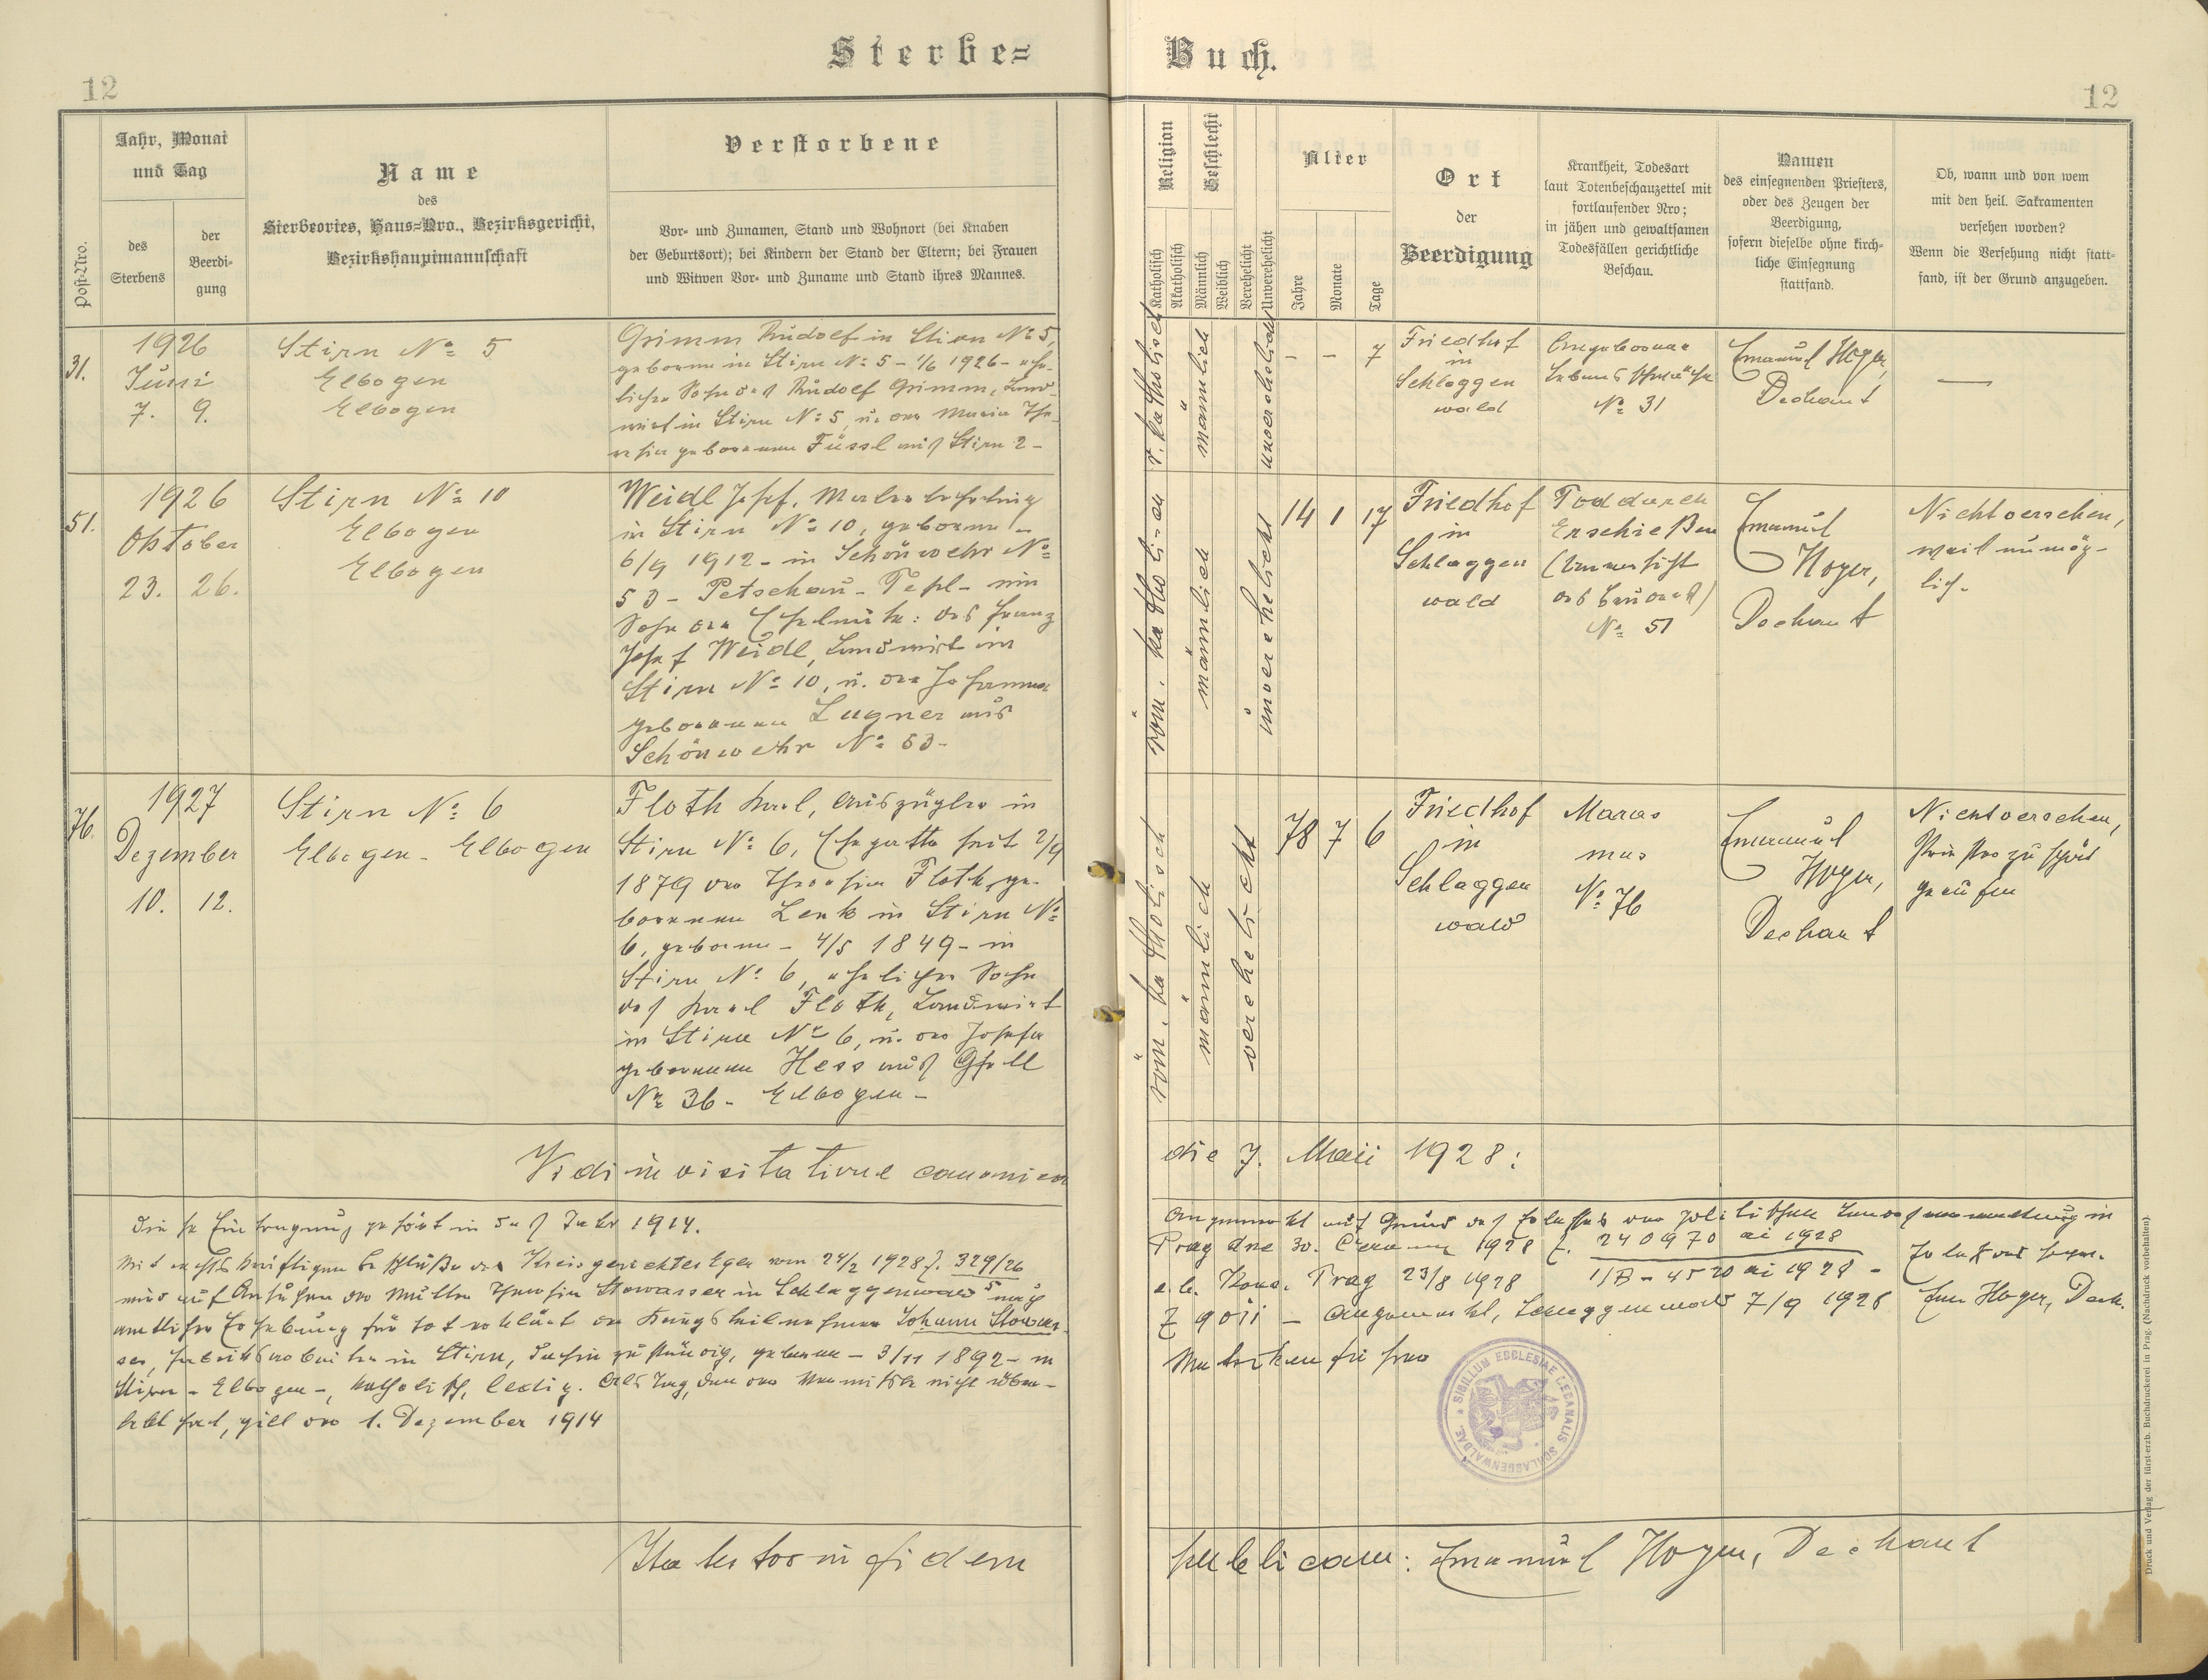 Sterbe= Buch.
12
12
Post-Nro.
Jahr, Monat
und Tag
des
Sterbens
der
Beerdi-
gung
Name
des
Sterbeortes, Haus=Nro., Bezirksgericht,
Bezirkshauptmannschaft
Verstorbene
Vor- und Zunamen, Stand und Wohnort (bei Knaben
der Geburtsort); bei Kindern der Stand der Eltern; bei Frauen
und Witwen Vor- und Zuname und Stand ihres Mannes.
Religion
Katholisch
Akatholisch
Geschlecht
Männlich
Weiblich
Verehelicht
Unverehelicht
Alter
Jahre
Monate
Tage
Ort
der
Beerdigung
Krankheit, Todesart
laut Totenbeschauzettel mit
fortlaufender Nro;
in jähen und gewaltsamen
Todesfällen gerichtliche
Beschau.
Namen
des einsegnenden Priesters,
oder des Zeugen der
Beerdigung,
sofern dieselbe ohne kirch-
liche Einsegnung
stattfand.
Ob, wann und von wem
mit den heil. Sakramenten
versehen worden?
Wenn die Versehung nicht statt-
fand, ist der Grund anzugeben.
31.
1926
Juni
7. 9.
Stirn No 5
Elbogen
Elbogen
Grimm Rudolf in Stirn No 5,
geboren in Stirn No 5 - 1/6 1926 - ehe-
licher Sohn des Rudolf Grimm, Land-
wirt in Stirn No 5, u. der Maria The-
resia geborenen Füssl aus Stirn 2 -
r. katholisch
männlich
unverehelicht
- - 7
Friedhof
in
Schlaggen
wald
Angeborene
Lebensschwäche
No 31
Emanuel Hoyer,
Dechant
—
51.
1926
Oktober
23. 26.
Stirn No 10
Elbogen
Elbogen
Weidl Josef, Malerlehrling
in Stirn No 10, geboren -
6/9 1912 - in Schönwehr No
53 - Petschau - Tepl - ein
Sohn der Eheleute: des Franz
Josef Weidl, Landwirt in
Stirn No 10, u. der Johanna
geborenen Lugner aus
Schönwehr No 53 -
röm. katholisch
männlich
unverehelicht
14 1 17
Friedhof
in
Schlaggen
wald
Tod durch
Erschießen
No 51
Emanuel
Hoyer,
Dechant
Nicht versehen,
weil unmög-
lich.
76.
1927
Dezember
10. 12.
Stirn No 6
Elbogen - Elbogen
Floth Karl, Auszügler in
Stirn No 6, Ehegatte seit 2/9
1879 der Theresia Floth, ge-
borenen Lenk in Stirn No
6, geboren - 4/5 1849 - in
Stirn No 6, ehelicher Sohn
des Karl Floth, Landwirt
in Stirn No 6, u. der Josefa
geborenen Hess aus Gfell
No 36 - Elbogen -
röm. katholisch
männlich
verehelicht
78 7 6
Friedhof
in
Schlaggen
wald
Maras
mus
No 76
Emanuel
Hoyer,
Dechant
Nicht versehen,
Priester zu spät
gerufen
Vidi in visitatione canonica die 7. Maii 1928:
Diese Eintragung gehört in das Jahr 1914.
Mit rechtskräftigem Beschluße des Kreisgerichtes Eger vom 24/2 1928 Z. 329/26
wird auf Ansuchen der Mutter Theresia Stowasser in Schlaggenwald nach
amtlicher Erhebung für tot erklärt der Kriegsteilnehmer Johann Stowas-
ser, Fabriksarbeiter in Stirn, dahin zuständig, geboren - 3/11 1892 - in
Stirn - Elbogen -, katholisch, ledig. Als Tag, den der Vermißte nicht über-
lebt hat, gilt der 1. Dezember 1914
Angemerkt auf Grund des Erlasses der politischen Landesverwaltung in
Prag dne 30. Června 1928 Z. 240970 ai 1928
e.b. Kons. Prag 23/8 1928 1/B - 4520 ai 1928 -
Z 9011 - angemerkt, Schlaggenwald 7/9 1928 Em Hoyer, Dech.
Matrikenführer
SIGILLUM ECCLESIAE DECANALIS SCHLAGGENWALDAE
Ita testor in fidem publicam: Emanuel Hoyer, Dechant
Druck und Verlag der fürst-erzb. Buchdruckerei in Prag. (Nachdruck vorbehalten)